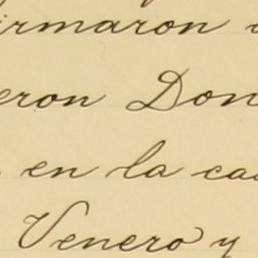 irmaron
eron Don
en la ca
Venero y